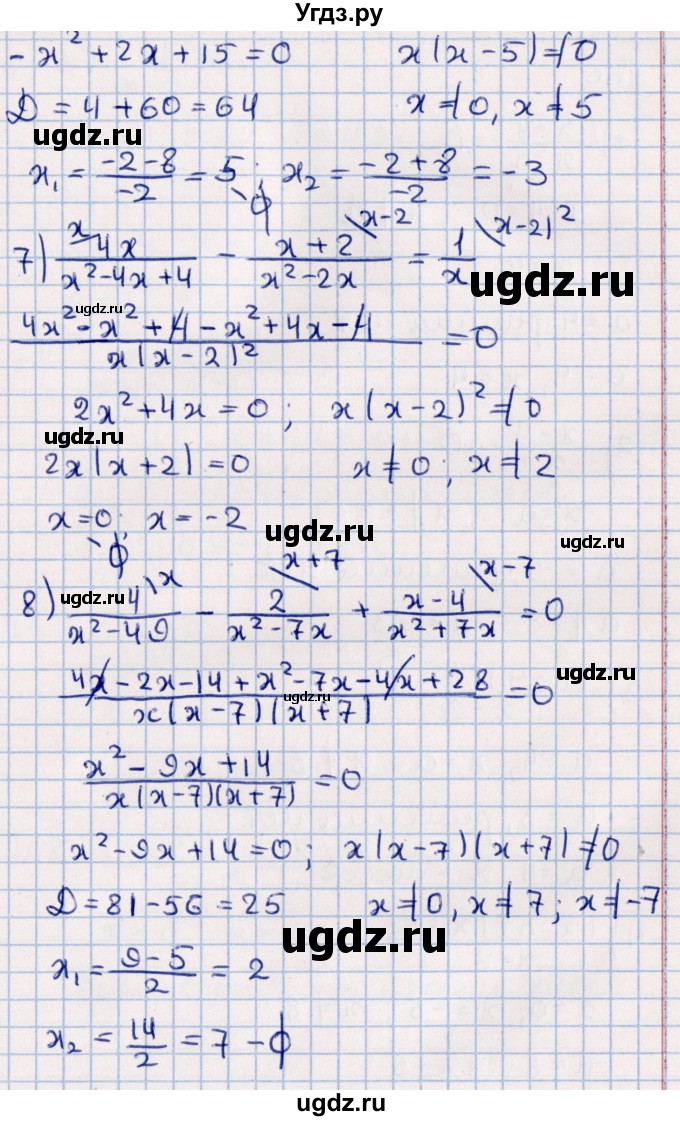 Угдз.ру
-x² + 2x + 15 = 0    x(x - 5) ≠ 0
D = 4 + 60 = 64    x ≠ 0, x ≠ 5
ugdz.ru
x₁ = (-2-8)/(-2) = 5 - ф; x₂ = (-2+8)/(-2) = -3
7) 4x/(x²-4x+4) \x - (x+2)/(x²-2x) \x-2 = 1/x \(x-2)²
ugdz.ru
ugdz.ru
(4x² - x² + 4 - x² + 4x - 4)/(x(x-2)²) = 0
2x² + 4x = 0; x(x-2)² ≠ 0
ugdz.ru
2x(x+2) = 0    x ≠ 0; x ≠ 2
x = 0 - ф; x = -2
ugdz.ru
8) 4/(x²-49) \x - 2/(x²-7x) \x+7 + (x-4)/(x²+7x) \x-7 = 0
ugdz.ru
(4x - 2x - 14 + x² - 7x - 4x + 28)/(x(x-7)(x+7)) = 0
ugdz.ru
ugdz.ru
(x² - 9x + 14)/(x(x-7)(x+7)) = 0
x² - 9x + 14 = 0; x(x-7)(x+7) ≠ 0
D = 81-56 = 25    x ≠ 0, x ≠ 7; x ≠ -7
ugdz.ru
x₁ = (9-5)/2 = 2
x₂ = 14/2 = 7 - ф
ugdz.ru